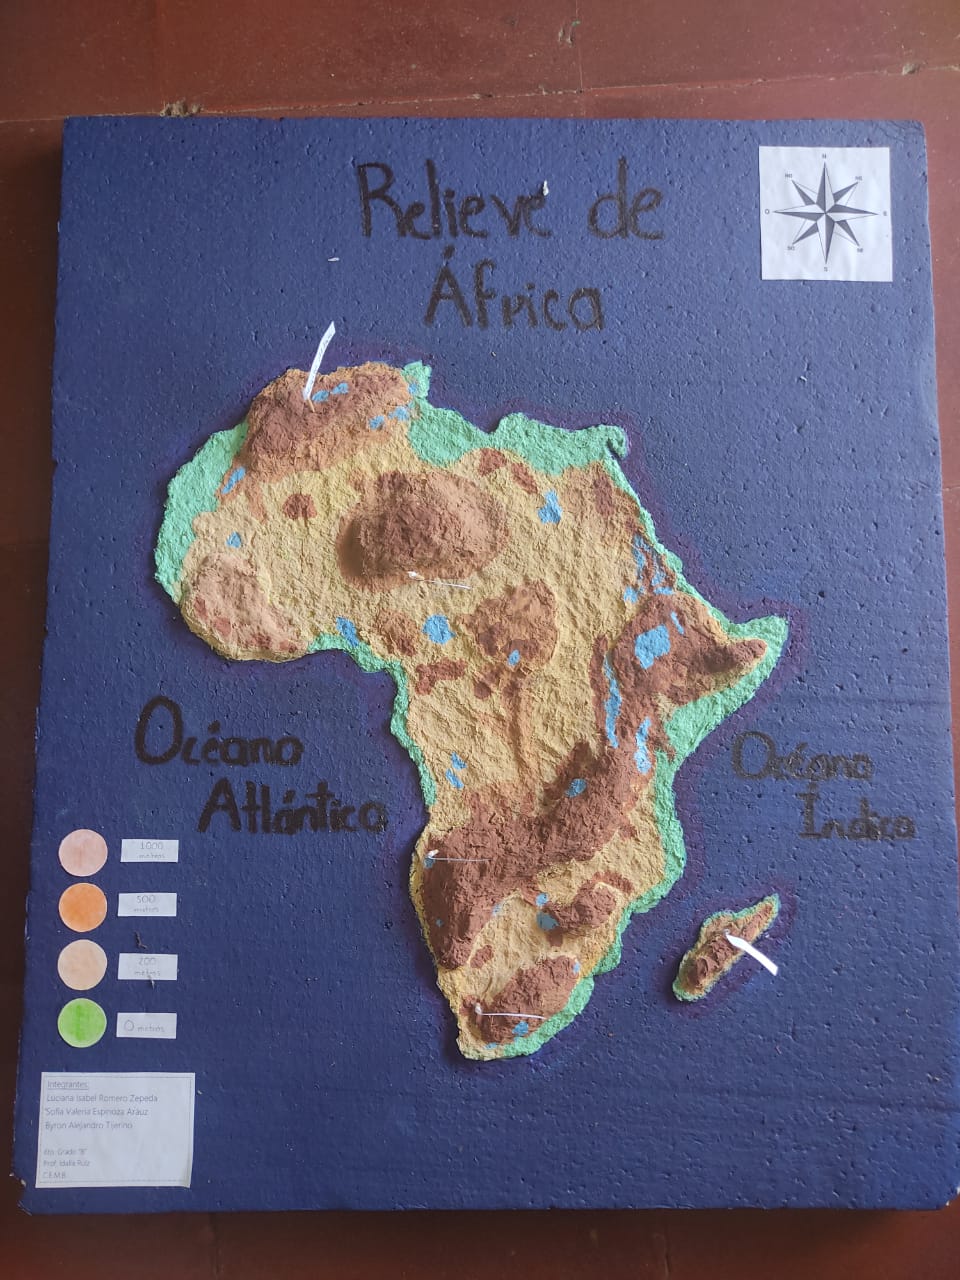 Relieve de
África
N
NO
NE
O
E
SO
SE
S
Océano
Atlántico
Océano
Índico
1000
metros
500
metros
200
metros
0 metros
Integrantes:
Luciana Isabel Romero Zepeda
Sofía Valeria Espinoza Aráuz
Byron Alejandro Tijerino
6to. Grado "B"
Prof: Idalia Ruiz
C.E.M.B